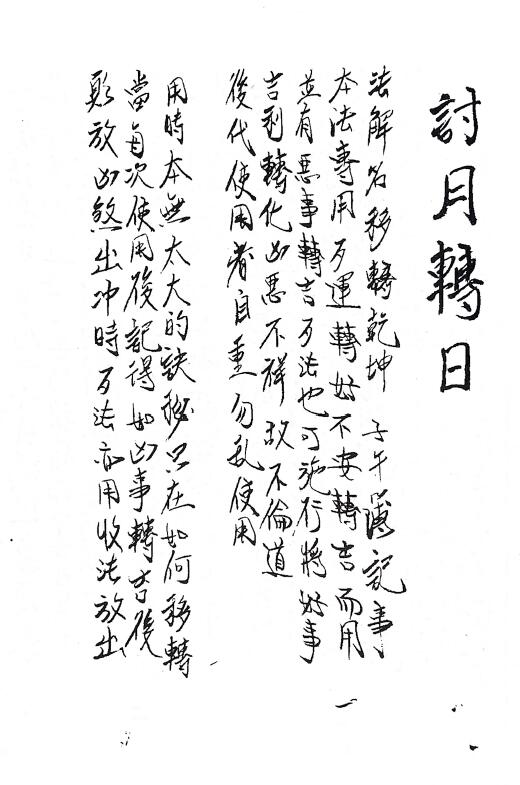 討月轉日
法解名移轉乾坤 子午簿記事
本法專用歹運轉好不安轉吉而用
並有惡事轉吉歹法也可施行將好事
吉利轉化凶惡不祥故不倫道
後代使用者自重勿乱使用
用時本無太大的訣秘只在如何移轉
當每次使用後記得如凶事轉吉後
放凶煞出冲時歹法亦用收法放出